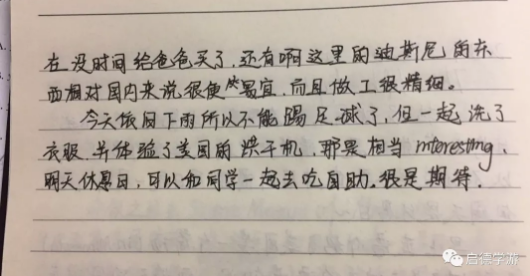 在没时间给爸爸买了,还有啊这里的迪斯尼的东
西相对国内来说很便宜,而且做工很精细。
今天依旧下雨所以不能踢足球了,但一起洗了
衣服,并体验了美国的烘干机,那是相当interesting,
明天休息日,可以和同学一起去吃自助,很是期待.
启德学游